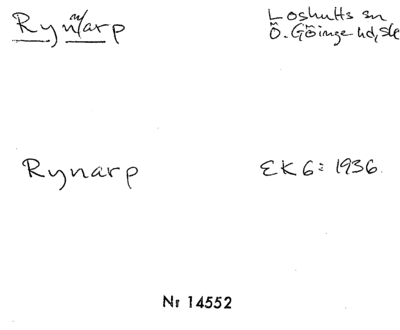 Rynarp
Loshults sn
Ö. Göinge hd, Sk
Rynarp
EK 6: 1936.
Nr 14552